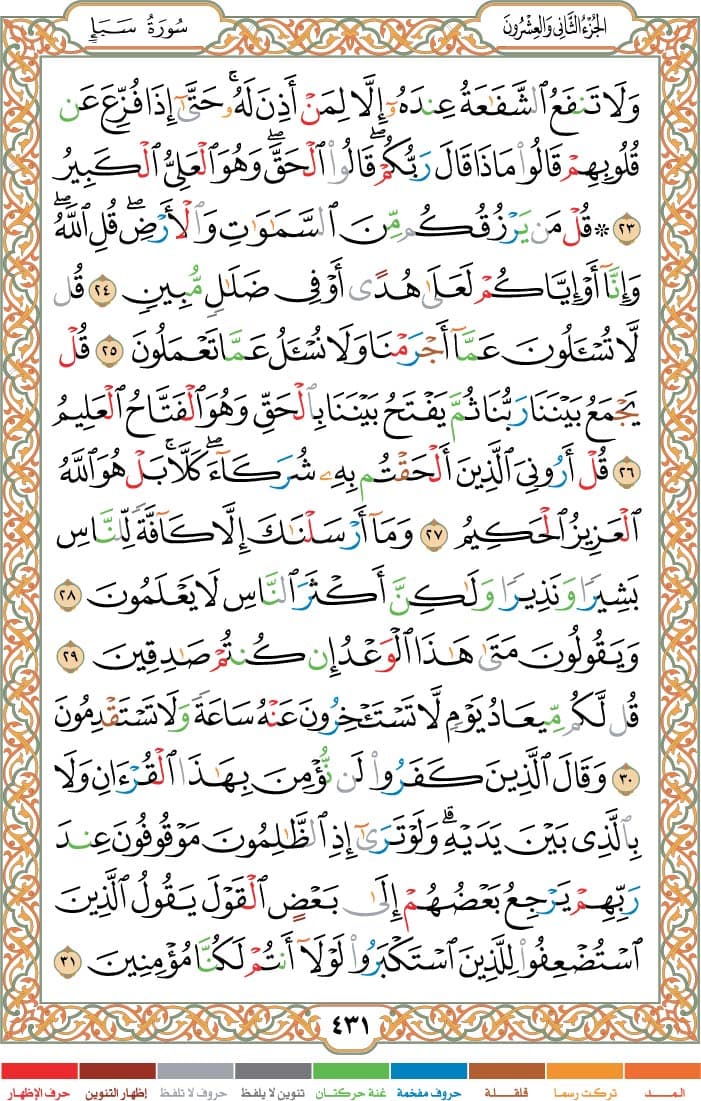 الجُزْءُ الثَّانِي وَالعِشْرُونَ
سُورَةُ سَبَإٍ
وَلَا تَنفَعُ ٱلشَّفَٰعَةُ عِندَهُۥٓ إِلَّا لِمَنْ أَذِنَ لَهُۥۚ حَتَّىٰٓ إِذَا فُزِّعَ عَن
قُلُوبِهِمْ قَالُوا۟ مَاذَا قَالَ رَبُّكُمْۖ قَالُوا۟ ٱلْحَقَّۖ وَهُوَ ٱلْعَلِىُّ ٱلْكَبِيرُ
٢٣ ۞ قُلْ مَن يَرْزُقُكُم مِّنَ ٱلسَّمَٰوَٰتِ وَٱلْأَرْضِۖ قُلِ ٱللَّهُۖ
وَإِنَّآ أَوْ إِيَّاكُمْ لَعَلَىٰ هُدًى أَوْ فِى ضَلَٰلٍ مُّبِينٍ ٢٤ قُل
لَّا تُسْـَٔلُونَ عَمَّآ أَجْرَمْنَا وَلَا نُسْـَٔلُ عَمَّا تَعْمَلُونَ ٢٥ قُلْ
يَجْمَعُ بَيْنَنَا رَبُّنَا ثُمَّ يَفْتَحُ بَيْنَنَا بِٱلْحَقِّ وَهُوَ ٱلْفَتَّاحُ ٱلْعَلِيمُ
٢٦ قُلْ أَرُونِىَ ٱلَّذِينَ أَلْحَقْتُم بِهِۦ شُرَكَآءَۖ كَلَّاۚ بَلْ هُوَ ٱللَّهُ
ٱلْعَزِيزُ ٱلْحَكِيمُ ٢٧ وَمَآ أَرْسَلْنَٰكَ إِلَّا كَآفَّةً لِّلنَّاسِ
بَشِيرًا وَنَذِيرًا وَلَٰكِنَّ أَكْثَرَ ٱلنَّاسِ لَا يَعْلَمُونَ ٢٨
وَيَقُولُونَ مَتَىٰ هَٰذَا ٱلْوَعْدُ إِن كُنتُمْ صَٰدِقِينَ ٢٩
قُل لَّكُم مِّيعَادُ يَوْمٍ لَّا تَسْتَـْٔخِرُونَ عَنْهُ سَاعَةً وَلَا تَسْتَقْدِمُونَ
٣٠ وَقَالَ ٱلَّذِينَ كَفَرُوا۟ لَن نُّؤْمِنَ بِهَٰذَا ٱلْقُرْءَانِ وَلَا
بِٱلَّذِى بَيْنَ يَدَيْهِۗ وَلَوْ تَرَىٰٓ إِذِ ٱلظَّٰلِمُونَ مَوْقُوفُونَ عِندَ
رَبِّهِمْ يَرْجِعُ بَعْضُهُمْ إِلَىٰ بَعْضٍ ٱلْقَوْلَ يَقُولُ ٱلَّذِينَ
ٱسْتُضْعِفُوا۟ لِلَّذِينَ ٱسْتَكْبَرُوا۟ لَوْلَآ أَنتُمْ لَكُنَّا مُؤْمِنِينَ ٣١
٤٣١
المـــد تركت رسما قلقلة حروف مفخمة غنة حركتان تنوين لا يلفظ حروف لا تلفظ إظهار التنوين حرف الإظهار